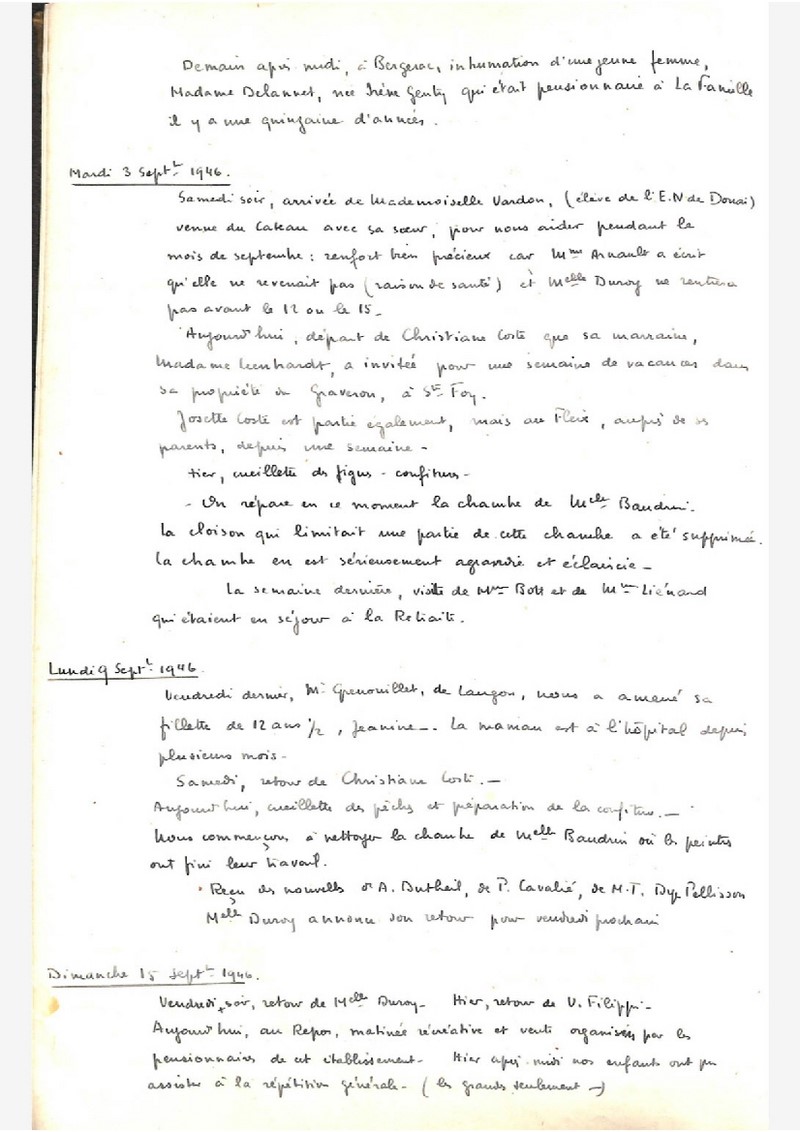 Demain après midi, à Bergerac, inhumation d'une jeune femme,
Madame Delannet, née Irène Genty qui était pensionnaire à La Famille
il y a une quinzaine d'années.
Mardi 3 Septt 1946.
Samedi soir, arrivée de Mademoiselle Vardon, (élève de l'E.N de Douai)
venue du Cateau avec sa sœur, pour nous aider pendant le
mois de septembre : renfort bien précieux car Mme Arnault a écrit
qu'elle ne revenait pas (raison de santé) et Melle Duroy ne rentrera
pas avant le 12 ou le 15_
Aujourd'hui, départ de Christiane Coste que sa marraine,
Madame Leenhardt, a invitée pour une semaine de vacances dans
sa propriété du Graveron, à Ste Foy.
Josette Coste est partie également, mais au Fleix, auprès de ses
parents, depuis une semaine -
Hier, cueillette des figues - confitures -
- On répare en ce moment la chambre de Melle Baudrin.
La cloison qui limitait une partie de cette chambre a été supprimée.
La chambre en est sérieusement agrandie et éclaircie _
La semaine dernière, visite de Mme Bott et de Mme Liénard
qui étaient en séjour à la Retraite.
Lundi 9 Septt 1946.
Vendredi dernier, Mr Grenouillet, de Langon, nous a amené sa
fillette de 12 ans 1/2, Jeanine_. La maman est à l'hôpital depuis
plusieurs mois -
Samedi, retour de Christiane Coste. _
Aujourd'hui, cueillette des pêches et préparation de la confiture. _
Nous commençons à nettoyer la chambre de Melle Baudrin où les peintres
ont fini leur travail.
Reçu des nouvelles d'A. Dutheil, de P. Cavalié, de M.T. Pellisson
Melle Duroy annonce son retour pour vendredi prochain
Dimanche 15 Septt 1946.
Vendredi soir, retour de Melle Duroy_ Hier, retour de V. Filippi_
Aujourd'hui, au Repos, matinée récréative et vente organisées par les
pensionnaires de cet établissement_ Hier après-midi nos enfants ont pu
assister à la répétition générale_ (les grands seulement _)